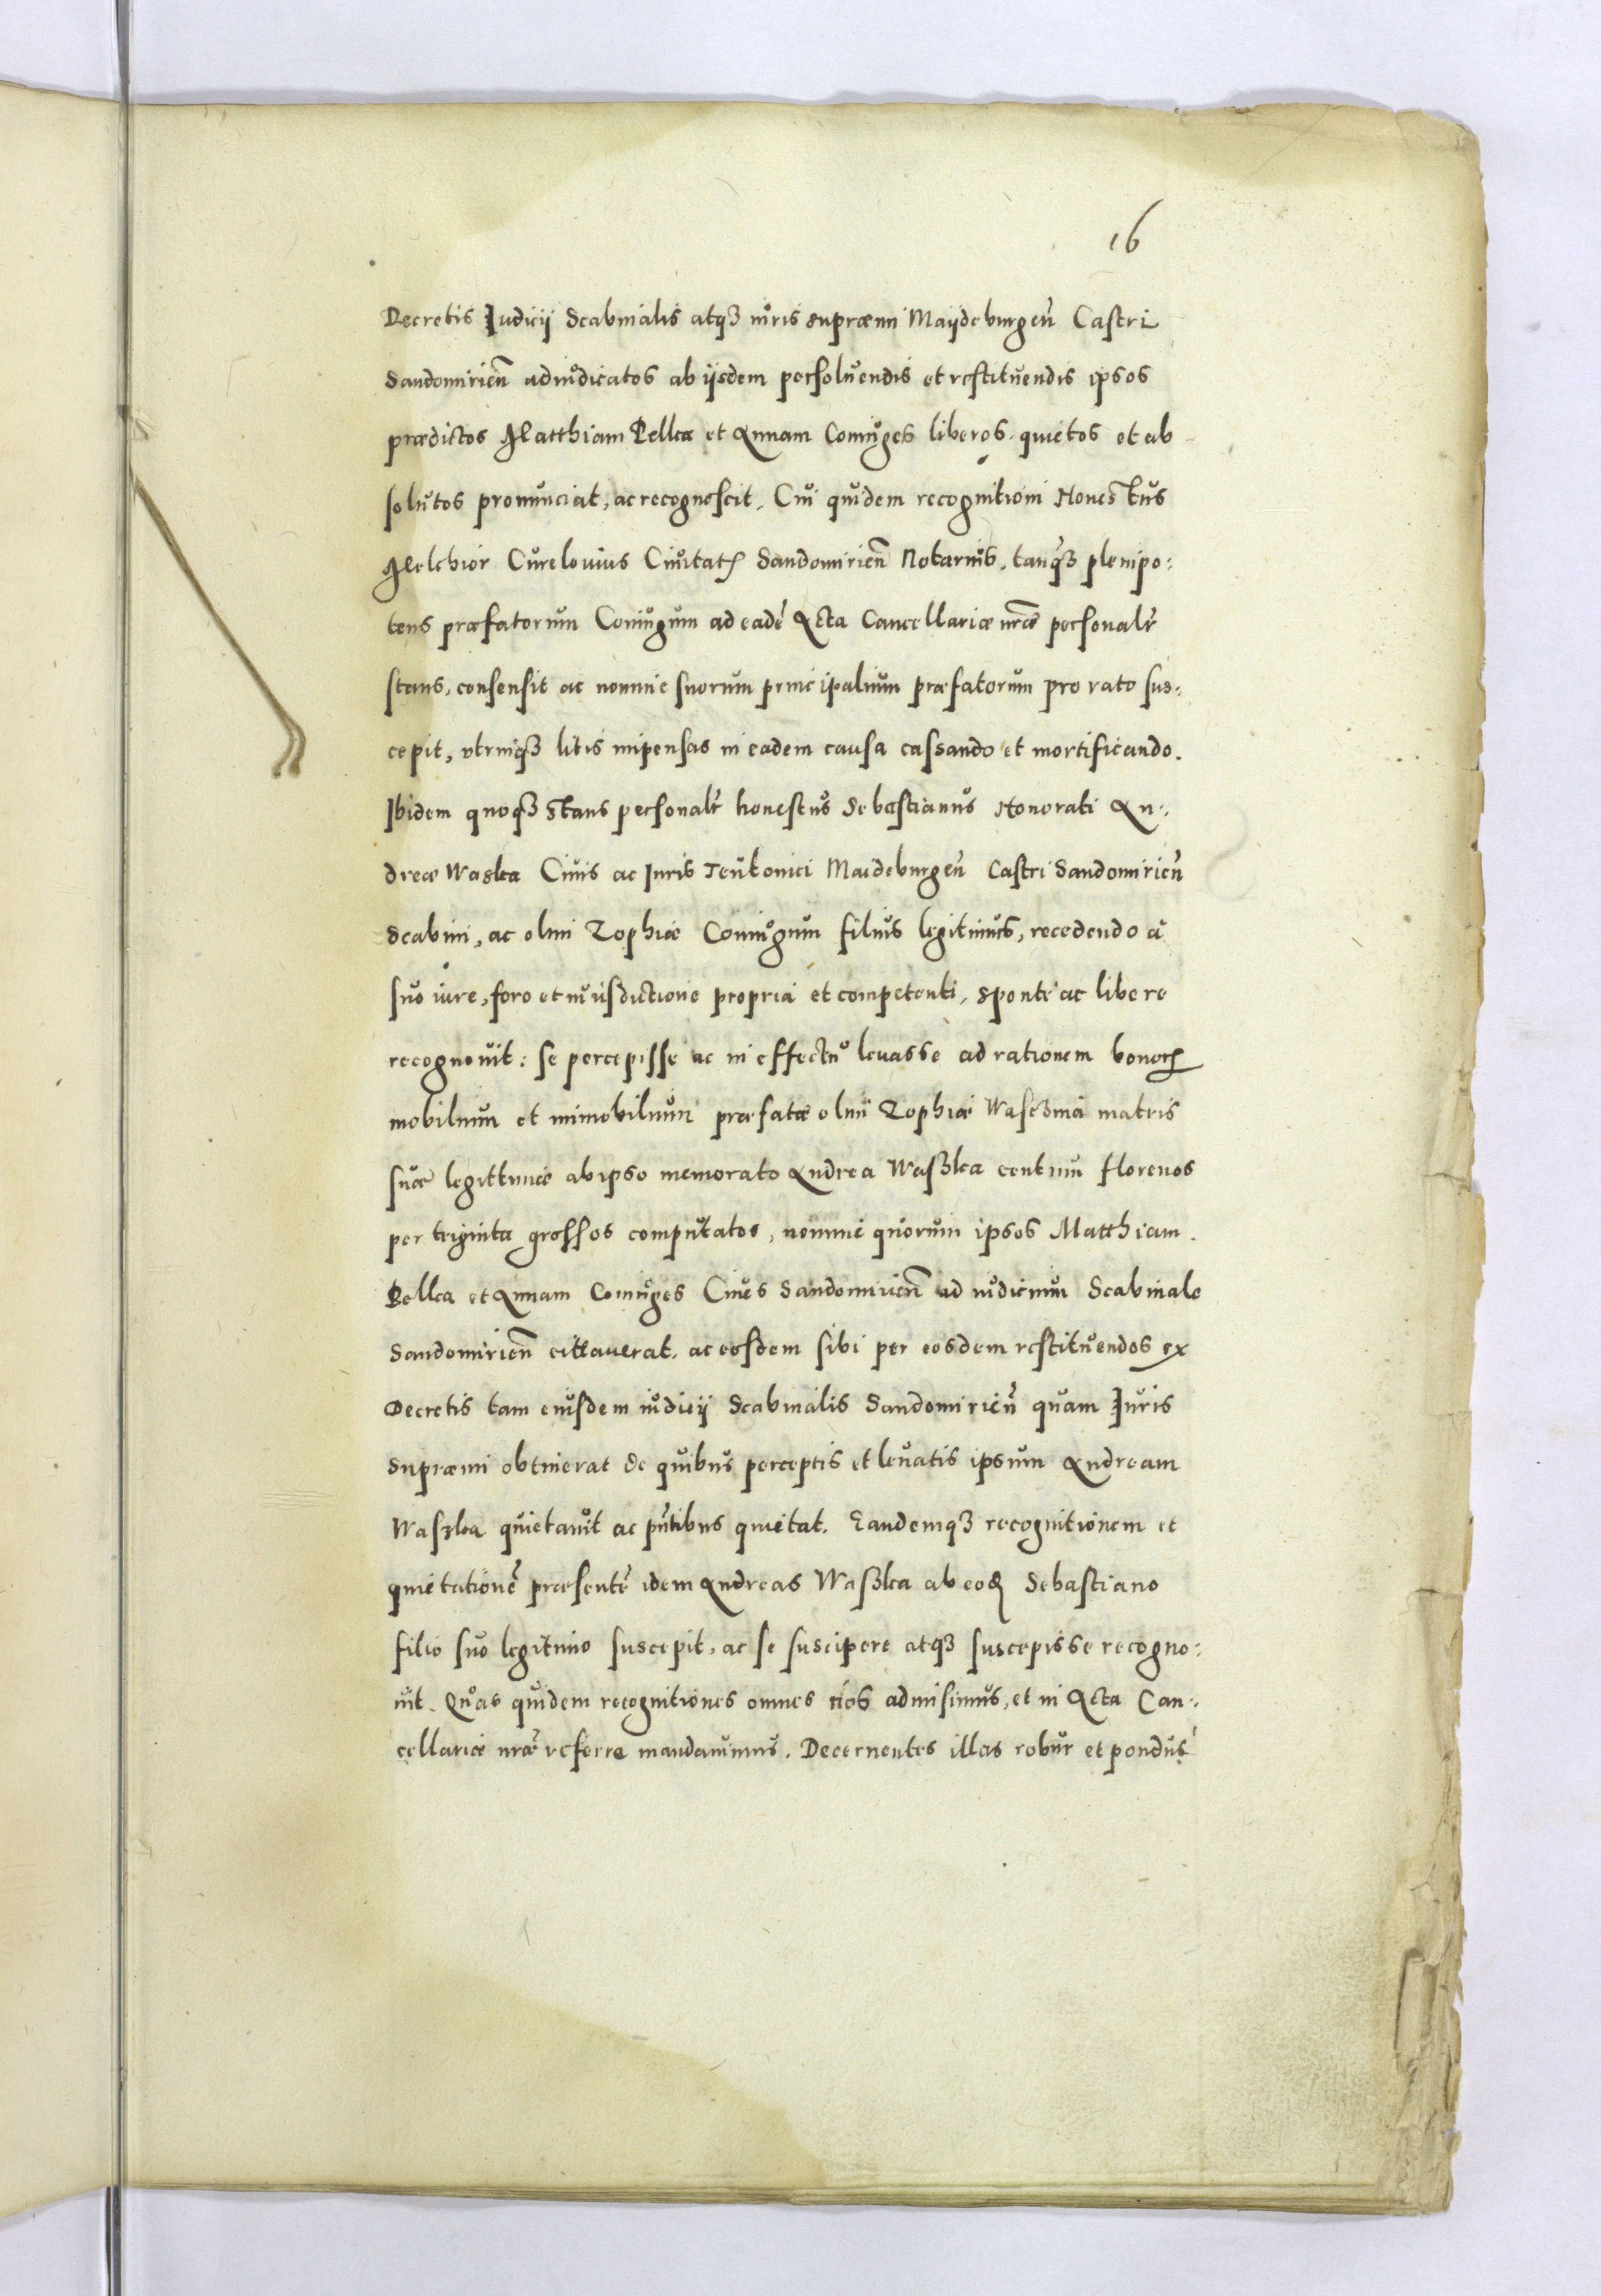 16
Decretis Iudicij Scabinalis atq₃ iuris supræmi Maijdeburgen̄ Castri
Sandomirien̄ adiudicatos ab ijsdem persoluendis et restituendis ipsos
prædictos Matthiam Pelka et Annam Coniuges liberos quietos et ab
solutos pronunciat, ac recognoscit. Cui quidem recognitioni Honestus
Melchior Curelouius Ciuitatꝭ Sandomirien̄ Notarius, tanq̄₃ plenipo:
tens præfatorum Coniugum ad eadē Acta Cancellariæ nr̄æ personalr̄
stans, consensit ac nomine suorum principalium præfatorum pro rato sus:
cepit, vtrinq₃ litis impensas in eadem causa cassando et mortificando.
Ibidem quoq₃ stans personalr̄ honestus Sebastianus Honorati An:
dreæ Waska Ciuis ac Iuris Teutonici Maideburgen̄ Castri Sandomirien̄
Scabini, ac olim Zophiæ Coniugum filius legitimus, recedendo à
suo iure, foro et iurisdictione propria et competenti, sponte ac libere
recognouit: se percepisse ac in effectu leuasse ad rationem bonorꝝ
mobilium et immobilium præfatæ olim Zophiæ Waszcina matris
suæ legittimæ ab ipso memorato Andrea Waszka centum florenos
per triginta grossos computatos, nomine quorum ipsos Matthiam
Pelka et Annam Coniuges Ciues Sandomirien̄ ad iudicium Scabinale
Sandomirien̄ cittauerat, ac eosdem sibi per eosdem restituendos ex
Decretis tam eiusdem iudicij Scabinalis Sandomirien̄ quam Iuris
Supræmi obtinerat de quibus perceptis et leuatis ipsum Andream
Waszka quietauit ac pn̄tibus quietat. Eandemq₃ recognitionem et
quietationē præsentē idem Andreas Waszka ab eodꝫ Sebastiano
filio suo legitimo suscepit, ac se suscipere atq₃ suscepisse recogno:
uit. Quas quidem recognitiones omnes nos admisimus, et in Acta Can:
cellariæ nr̄æ referre mandauimus. Decernentes illas robur et pondus